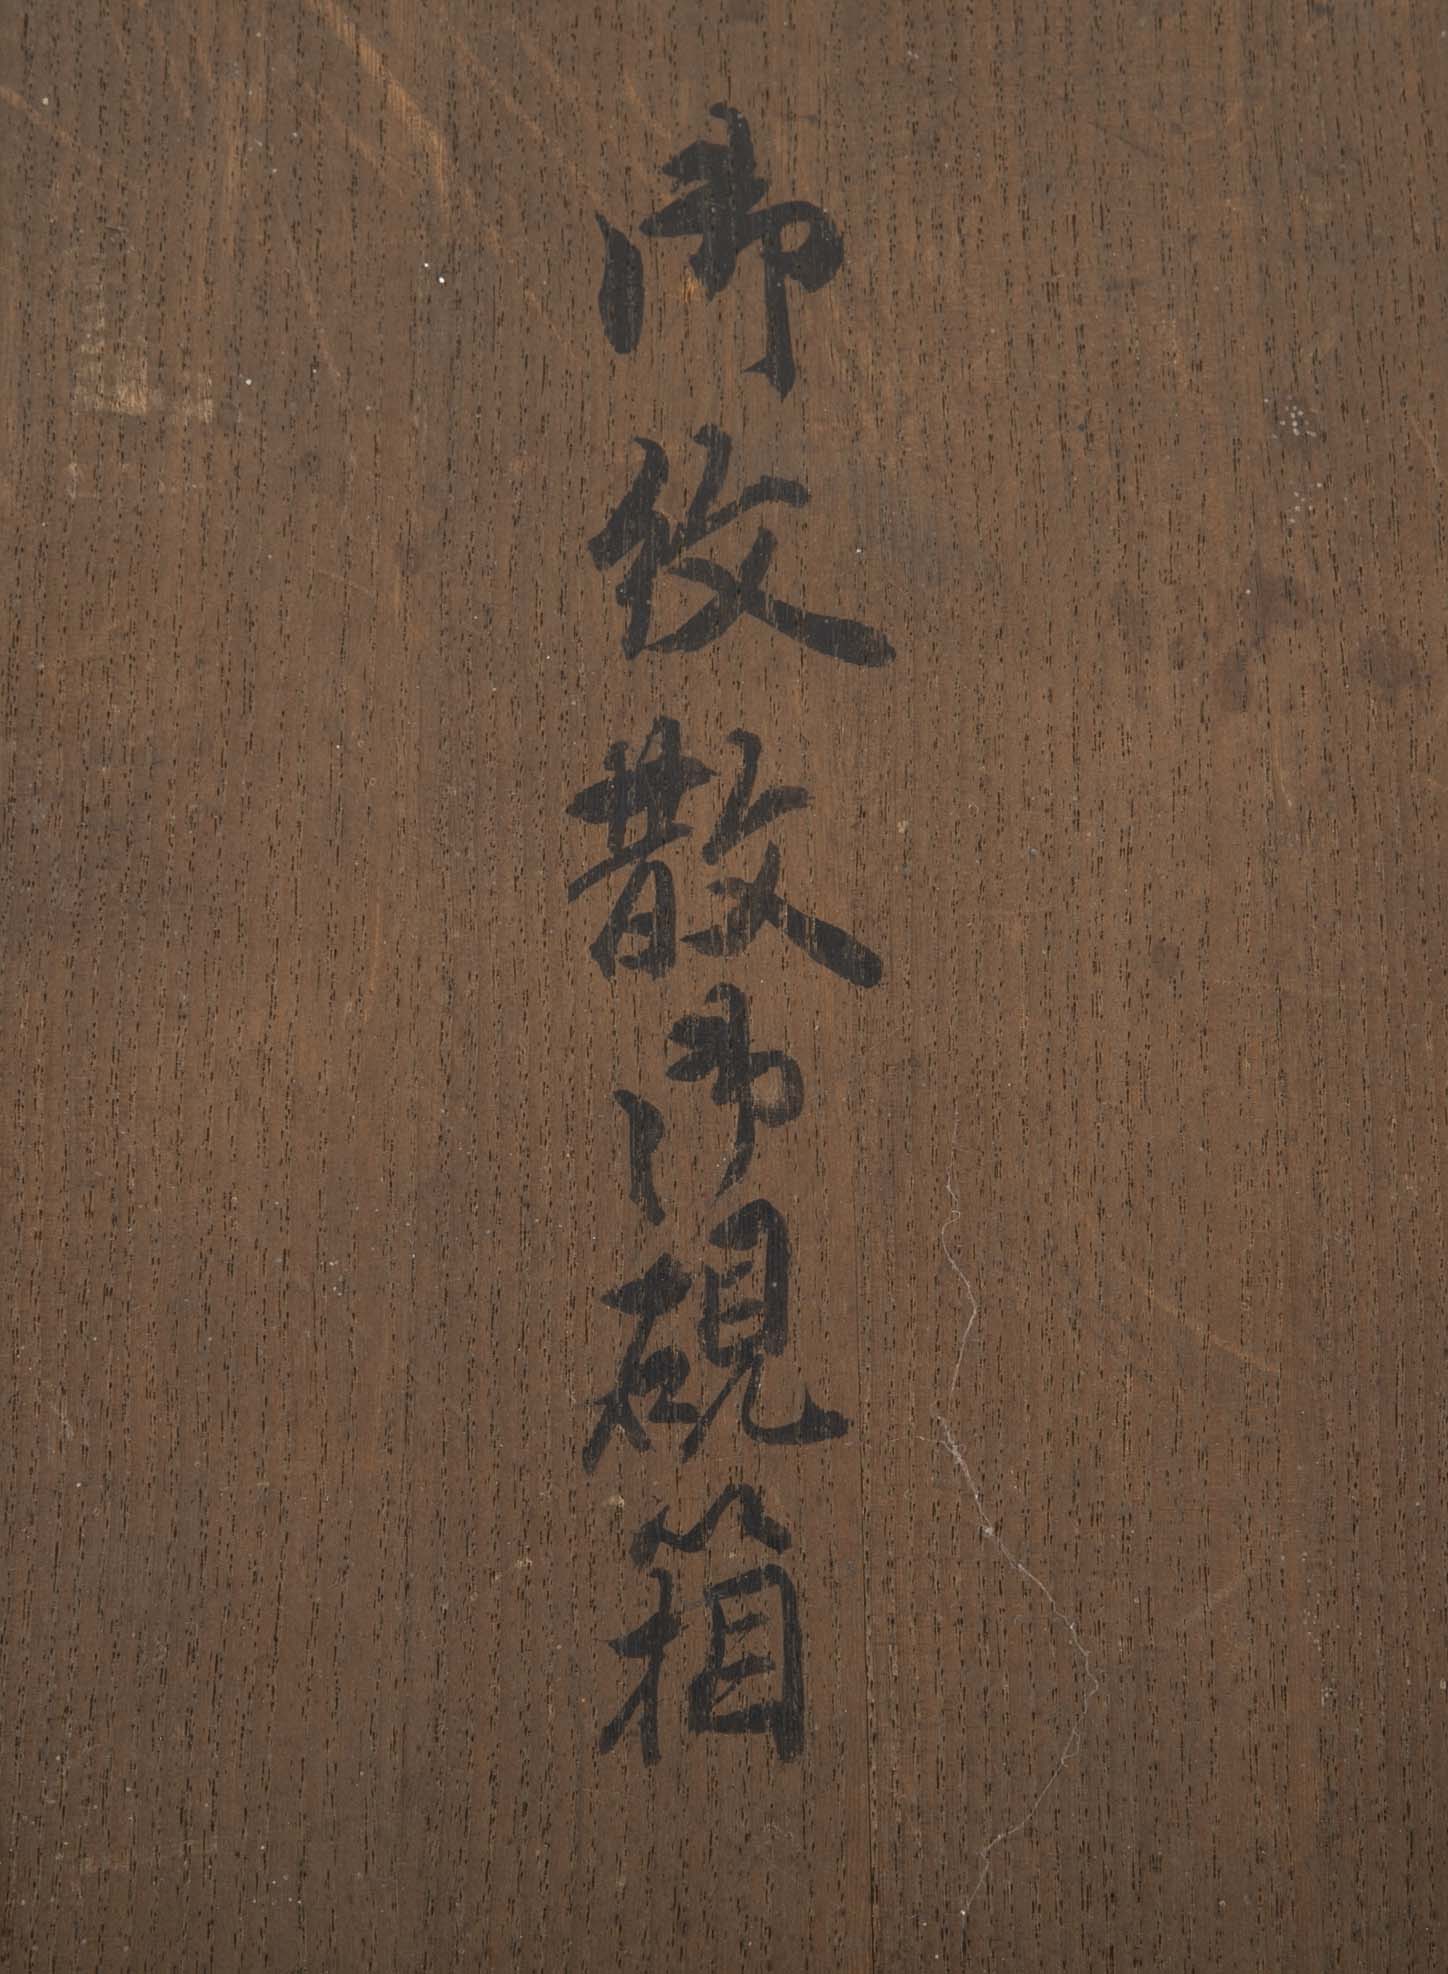 御紋散御硯箱